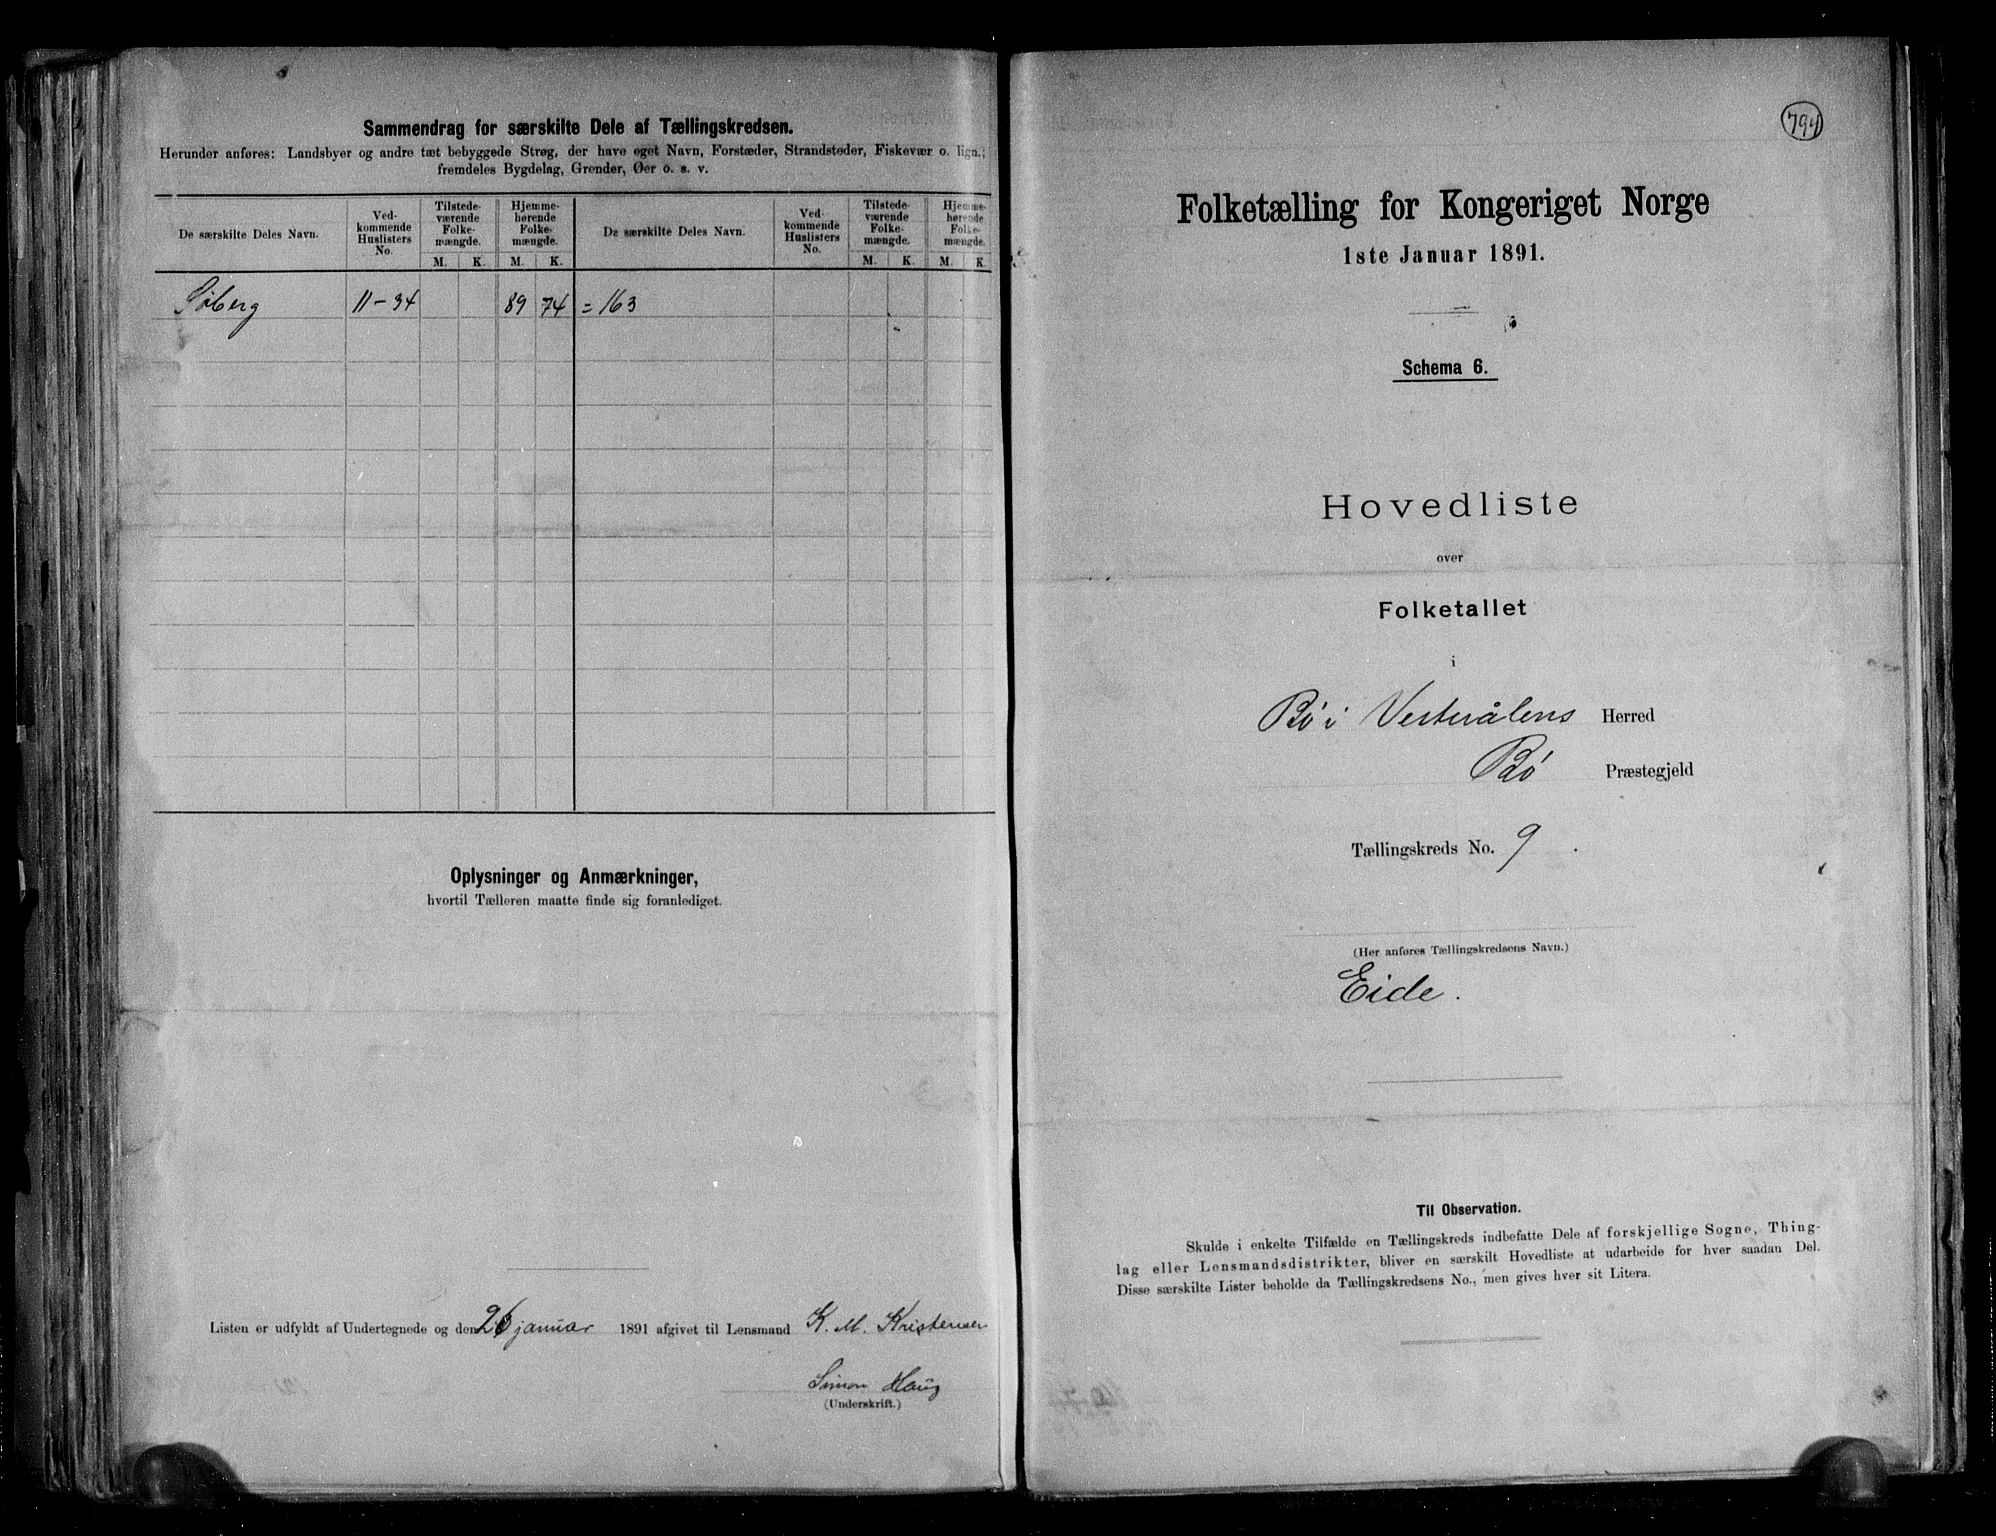 Sammendrag for særskilte Dele af Tællingskredsen.
Herunder anføres: Landsbyer og andre tæt bebyggede Strøg, der have eget Navn, Forstæder, Strandsteder, Fiskevær o. lign.;
fremdeles Bygdelag, Grender, Øer o. s. v.
De særskilte Deles Navn. Ved-kommende Huslisters No. Tilstede-værende Folke-mængde. Hjemme-hørende Folke-mængde. De særskilte Deles Navn. Ved-kommende Huslisters No. Tilstede-værende Folke-mængde. Hjemme-hørende Folke-mængde.
M. K. M. K. M. K. M. K.
Søberg 11-34 89 74 = 163
Oplysninger og Anmærkninger,
hvortil Tælleren maatte finde sig foranlediget.
Listen er udfyldt af Undertegnede og den 26 januar 1891 afgivet til Lensmand K. M. Kristensen
Simon Haug
(Underskrift.)
794
Folketælling for Kongeriget Norge
1ste Januar 1891.
Schema 6.
Hovedliste
over
Folketallet
i
Bø i Vesterålens Herred
Bø Præstegjeld
Tællingskreds No. 9.
(Her anføres Tællingskredsens Navn.)
Eide.
Til Observation.
Skulde i enkelte Tilfælde en Tællingskreds indbefatte Dele af forskjellige Sogne, Thing-
lag eller Lensmandsdistrikter, bliver en særskilt Hovedliste at udarbeide for hver saadan Del.
Disse særskilte Lister beholde da Tællingskredsens No., men gives hver sit Litera.